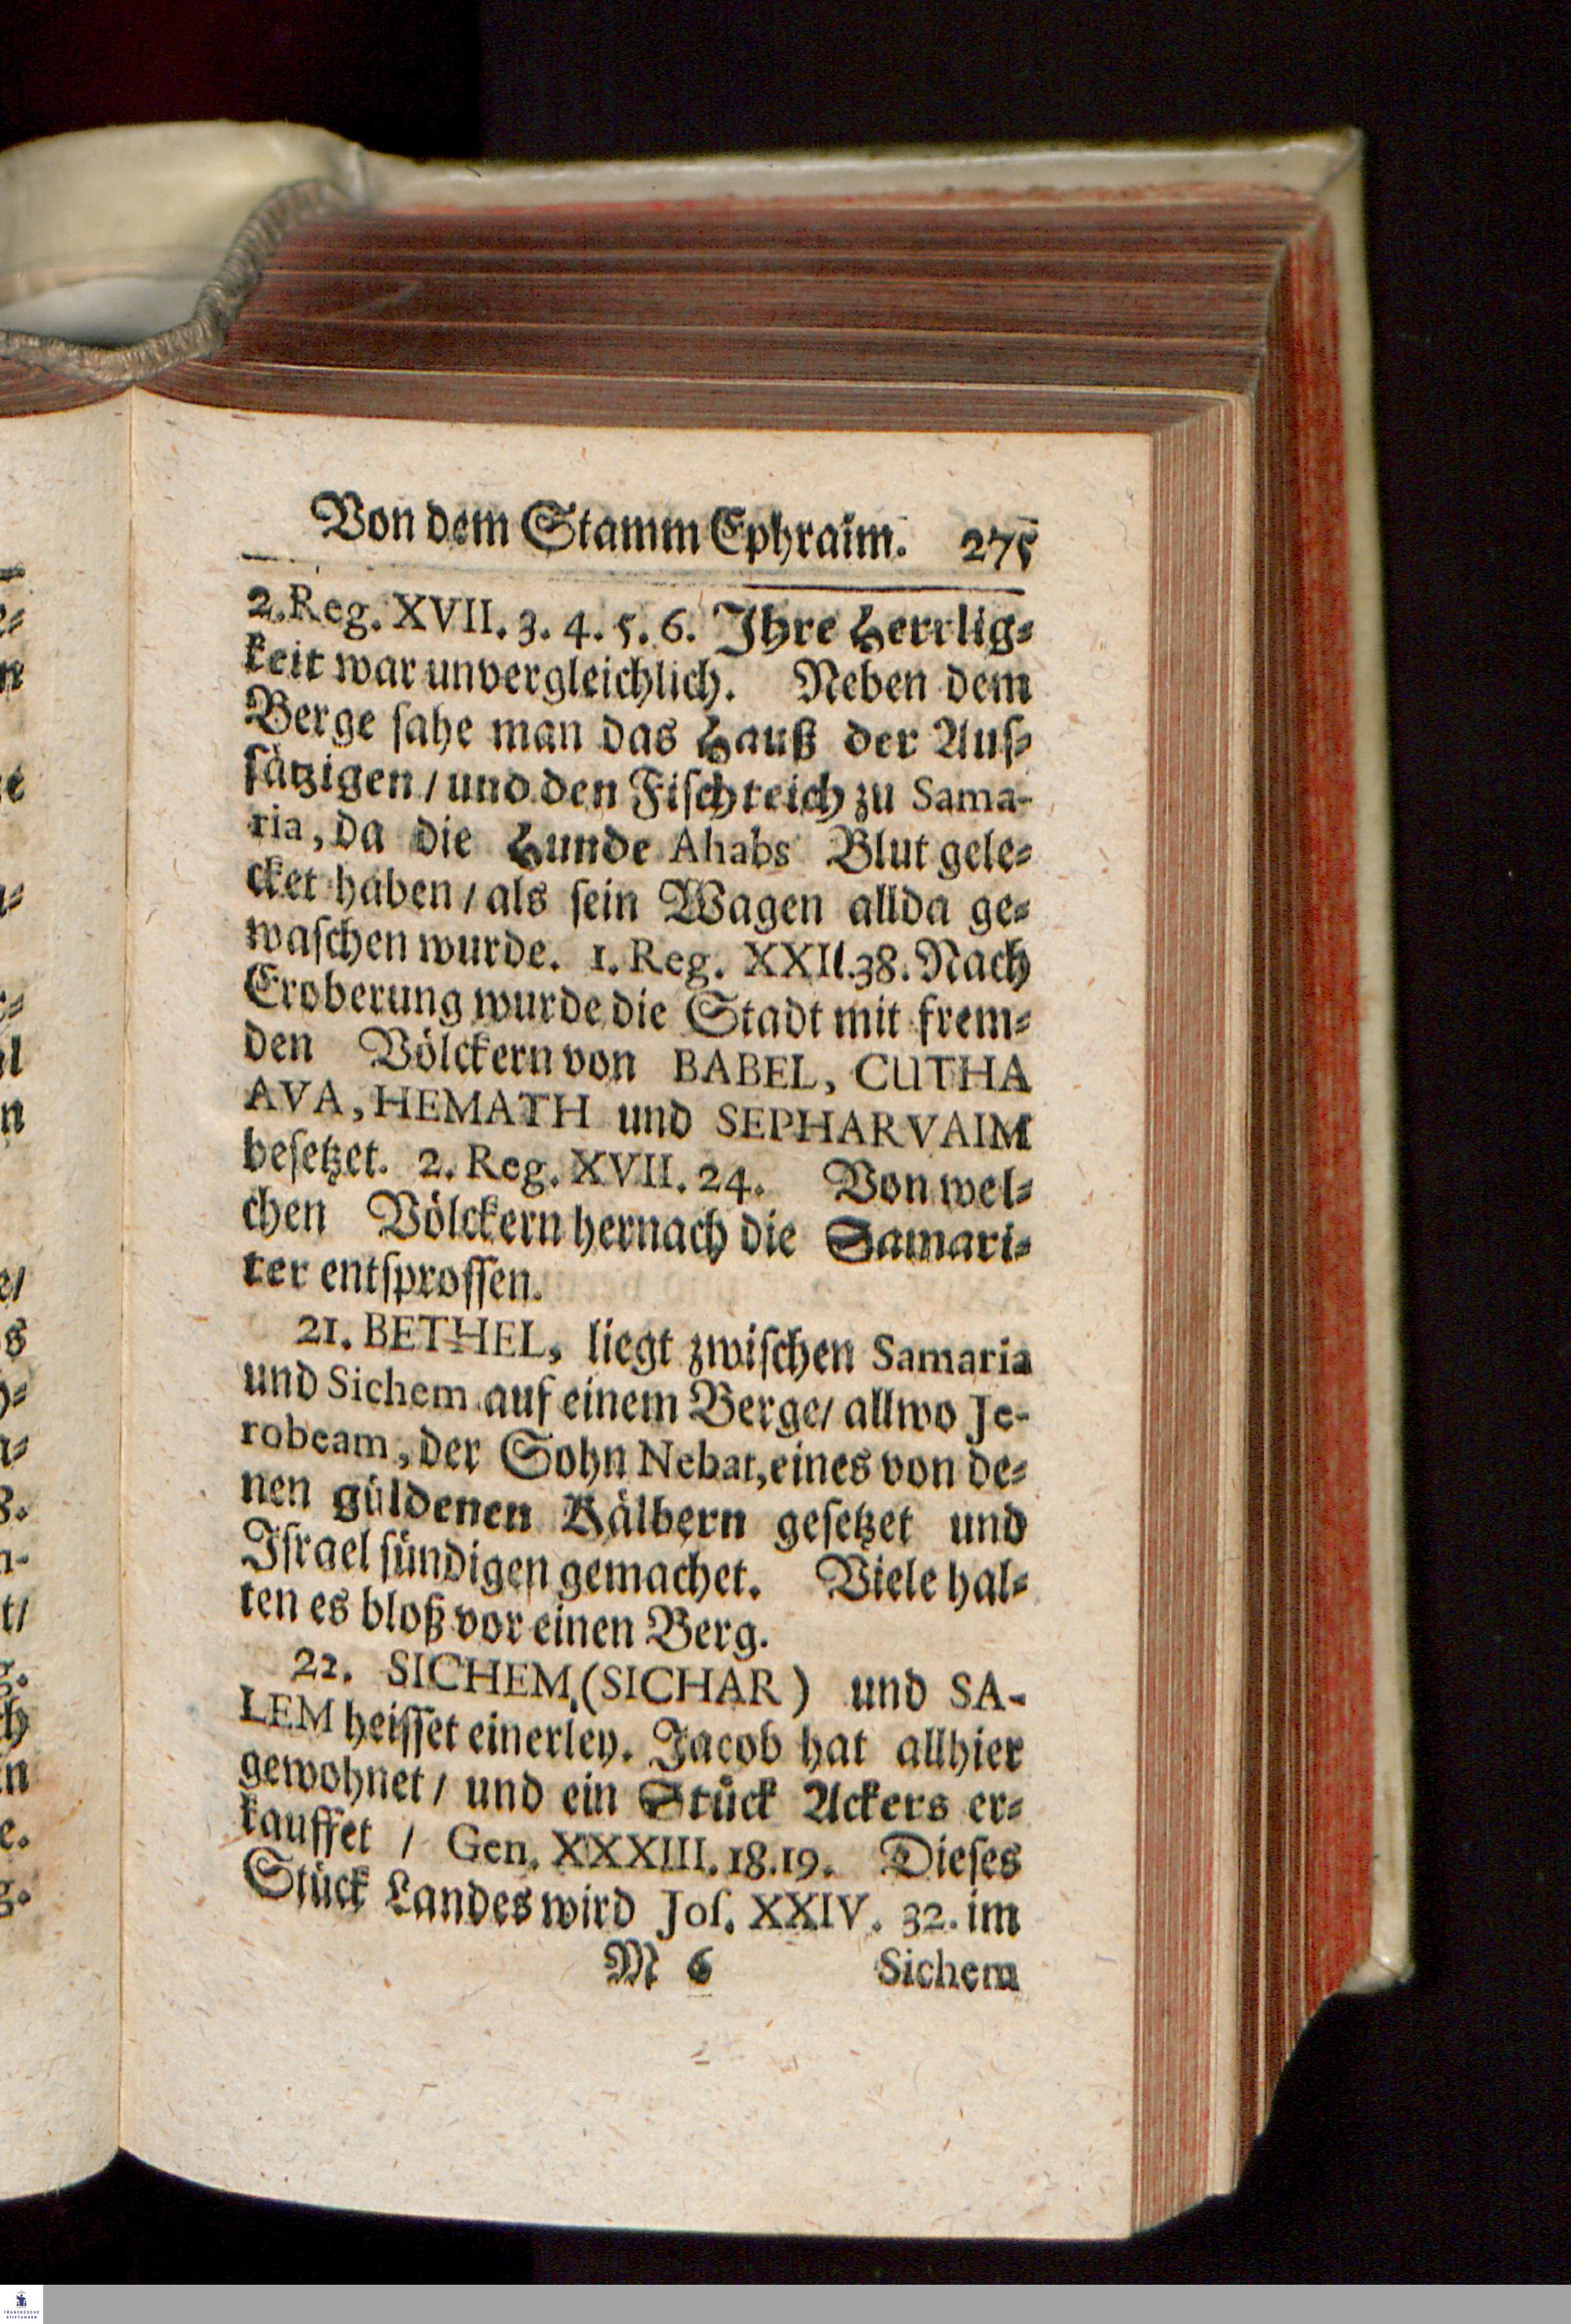 Von dem Stamm Ephraim. 275
2. Reg. XVII. 3. 4. 5. 6. Ihre Herrlig-
keit war unvergleichlich. Neben dem
Berge sahe man das Hauß der Aus-
sätzigen / und den Fischteich zu Sama-
ria, da die Hunde Ahabs Blut gele-
cket haben / als sein Wagen allda ge-
waschen wurde. 1. Reg. XXII. 38. Nach
Eroberung wurde die Stadt mit frem-
den Völckern von BABEL, CUTHA
AVA, HEMATH und SEPHARVAIM
besetzet. 2. Reg. XVII. 24. Von wel-
chen Völckern hernach die Samari-
ter entsprossen.
21. BETHEL, liegt zwischen Samaria
und Sichem auf einem Berge / allwo Je-
robeam, der Sohn Nebat, eines von de-
nen güldenen Kälbern gesetzet und
Israel sündigen gemachet. Viele hal-
ten es bloß vor einen Berg.
22. SICHEM, (SICHAR) und SA-
LEM heisset einerley. Jacob hat allhier
gewohnet / und ein Stück Ackers er-
kauffet / Gen. XXXIII. 18. 19. Dieses
Stück Landes wird Jos. XXIV. 32. im
M 6 Sichem
FRANCKESCHE
STIFTUNGEN